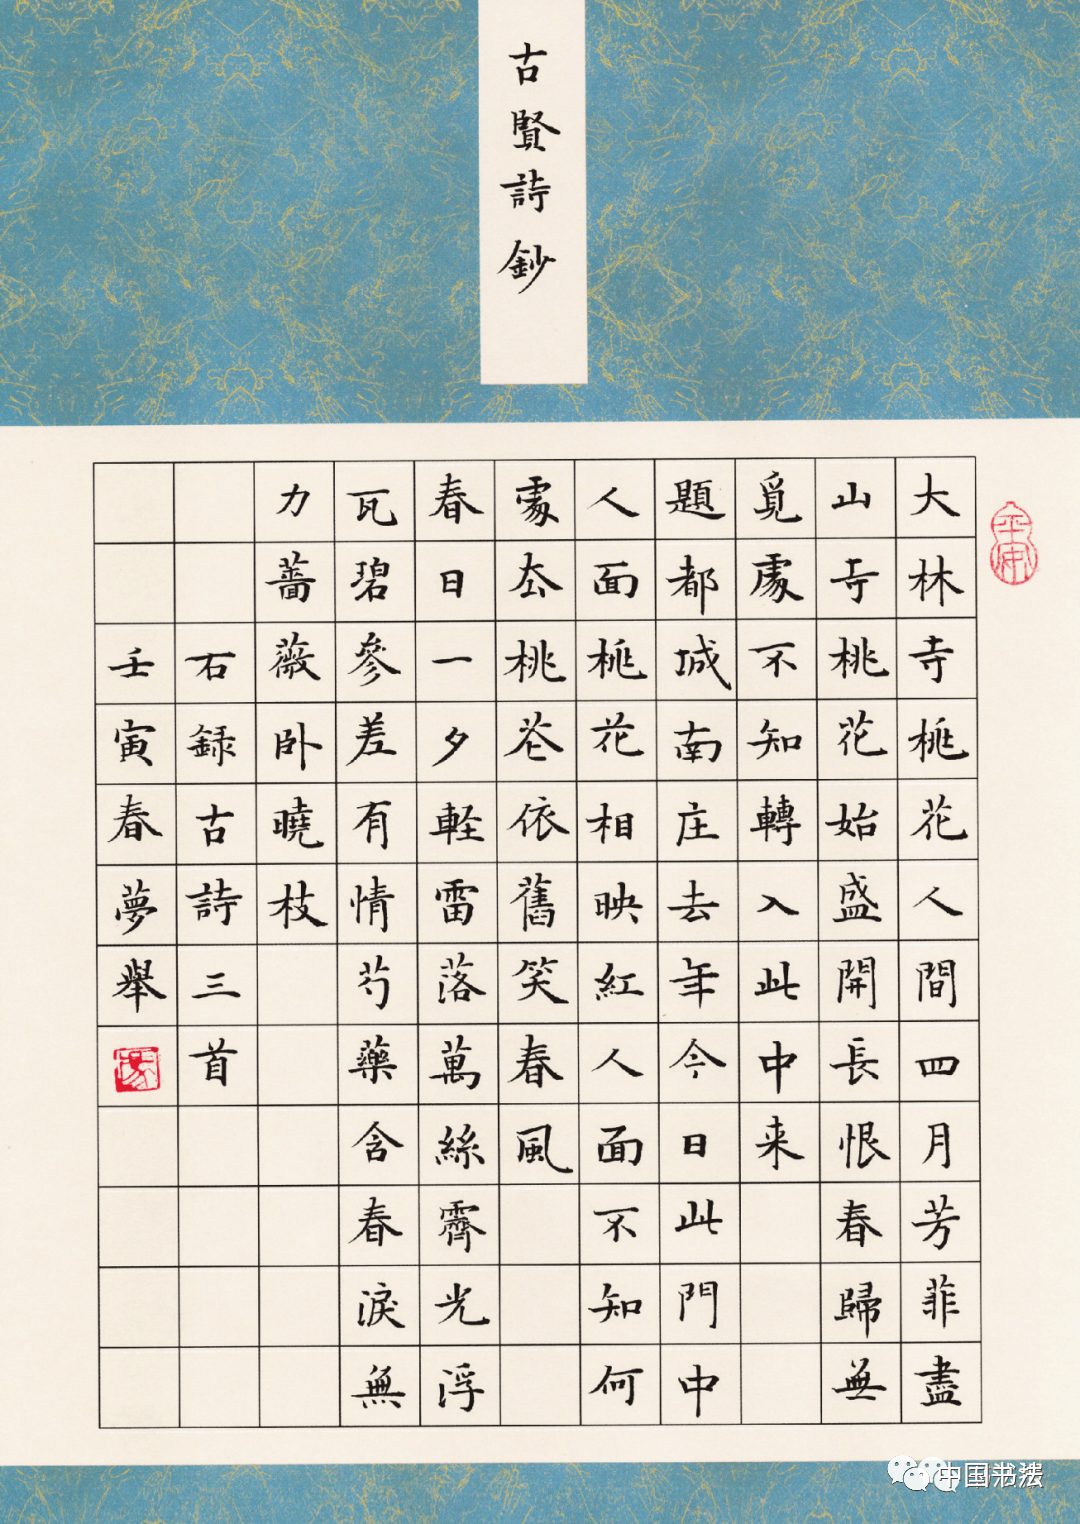 古賢詩鈔
大林寺桃花人間四月芳菲盡
山寺桃花始盛開長恨春歸無
覓處不知轉入此中来
題都城南庄去年今日此門中
人面桃花相映紅人面不知何
處去桃花依舊笑春風
春日一夕軽雷落萬絲霽光浮
瓦碧參差有情芍藥含春淚無
力薔薇卧曉枝
右録古詩三首
壬寅春夢舉
平安
中国书法